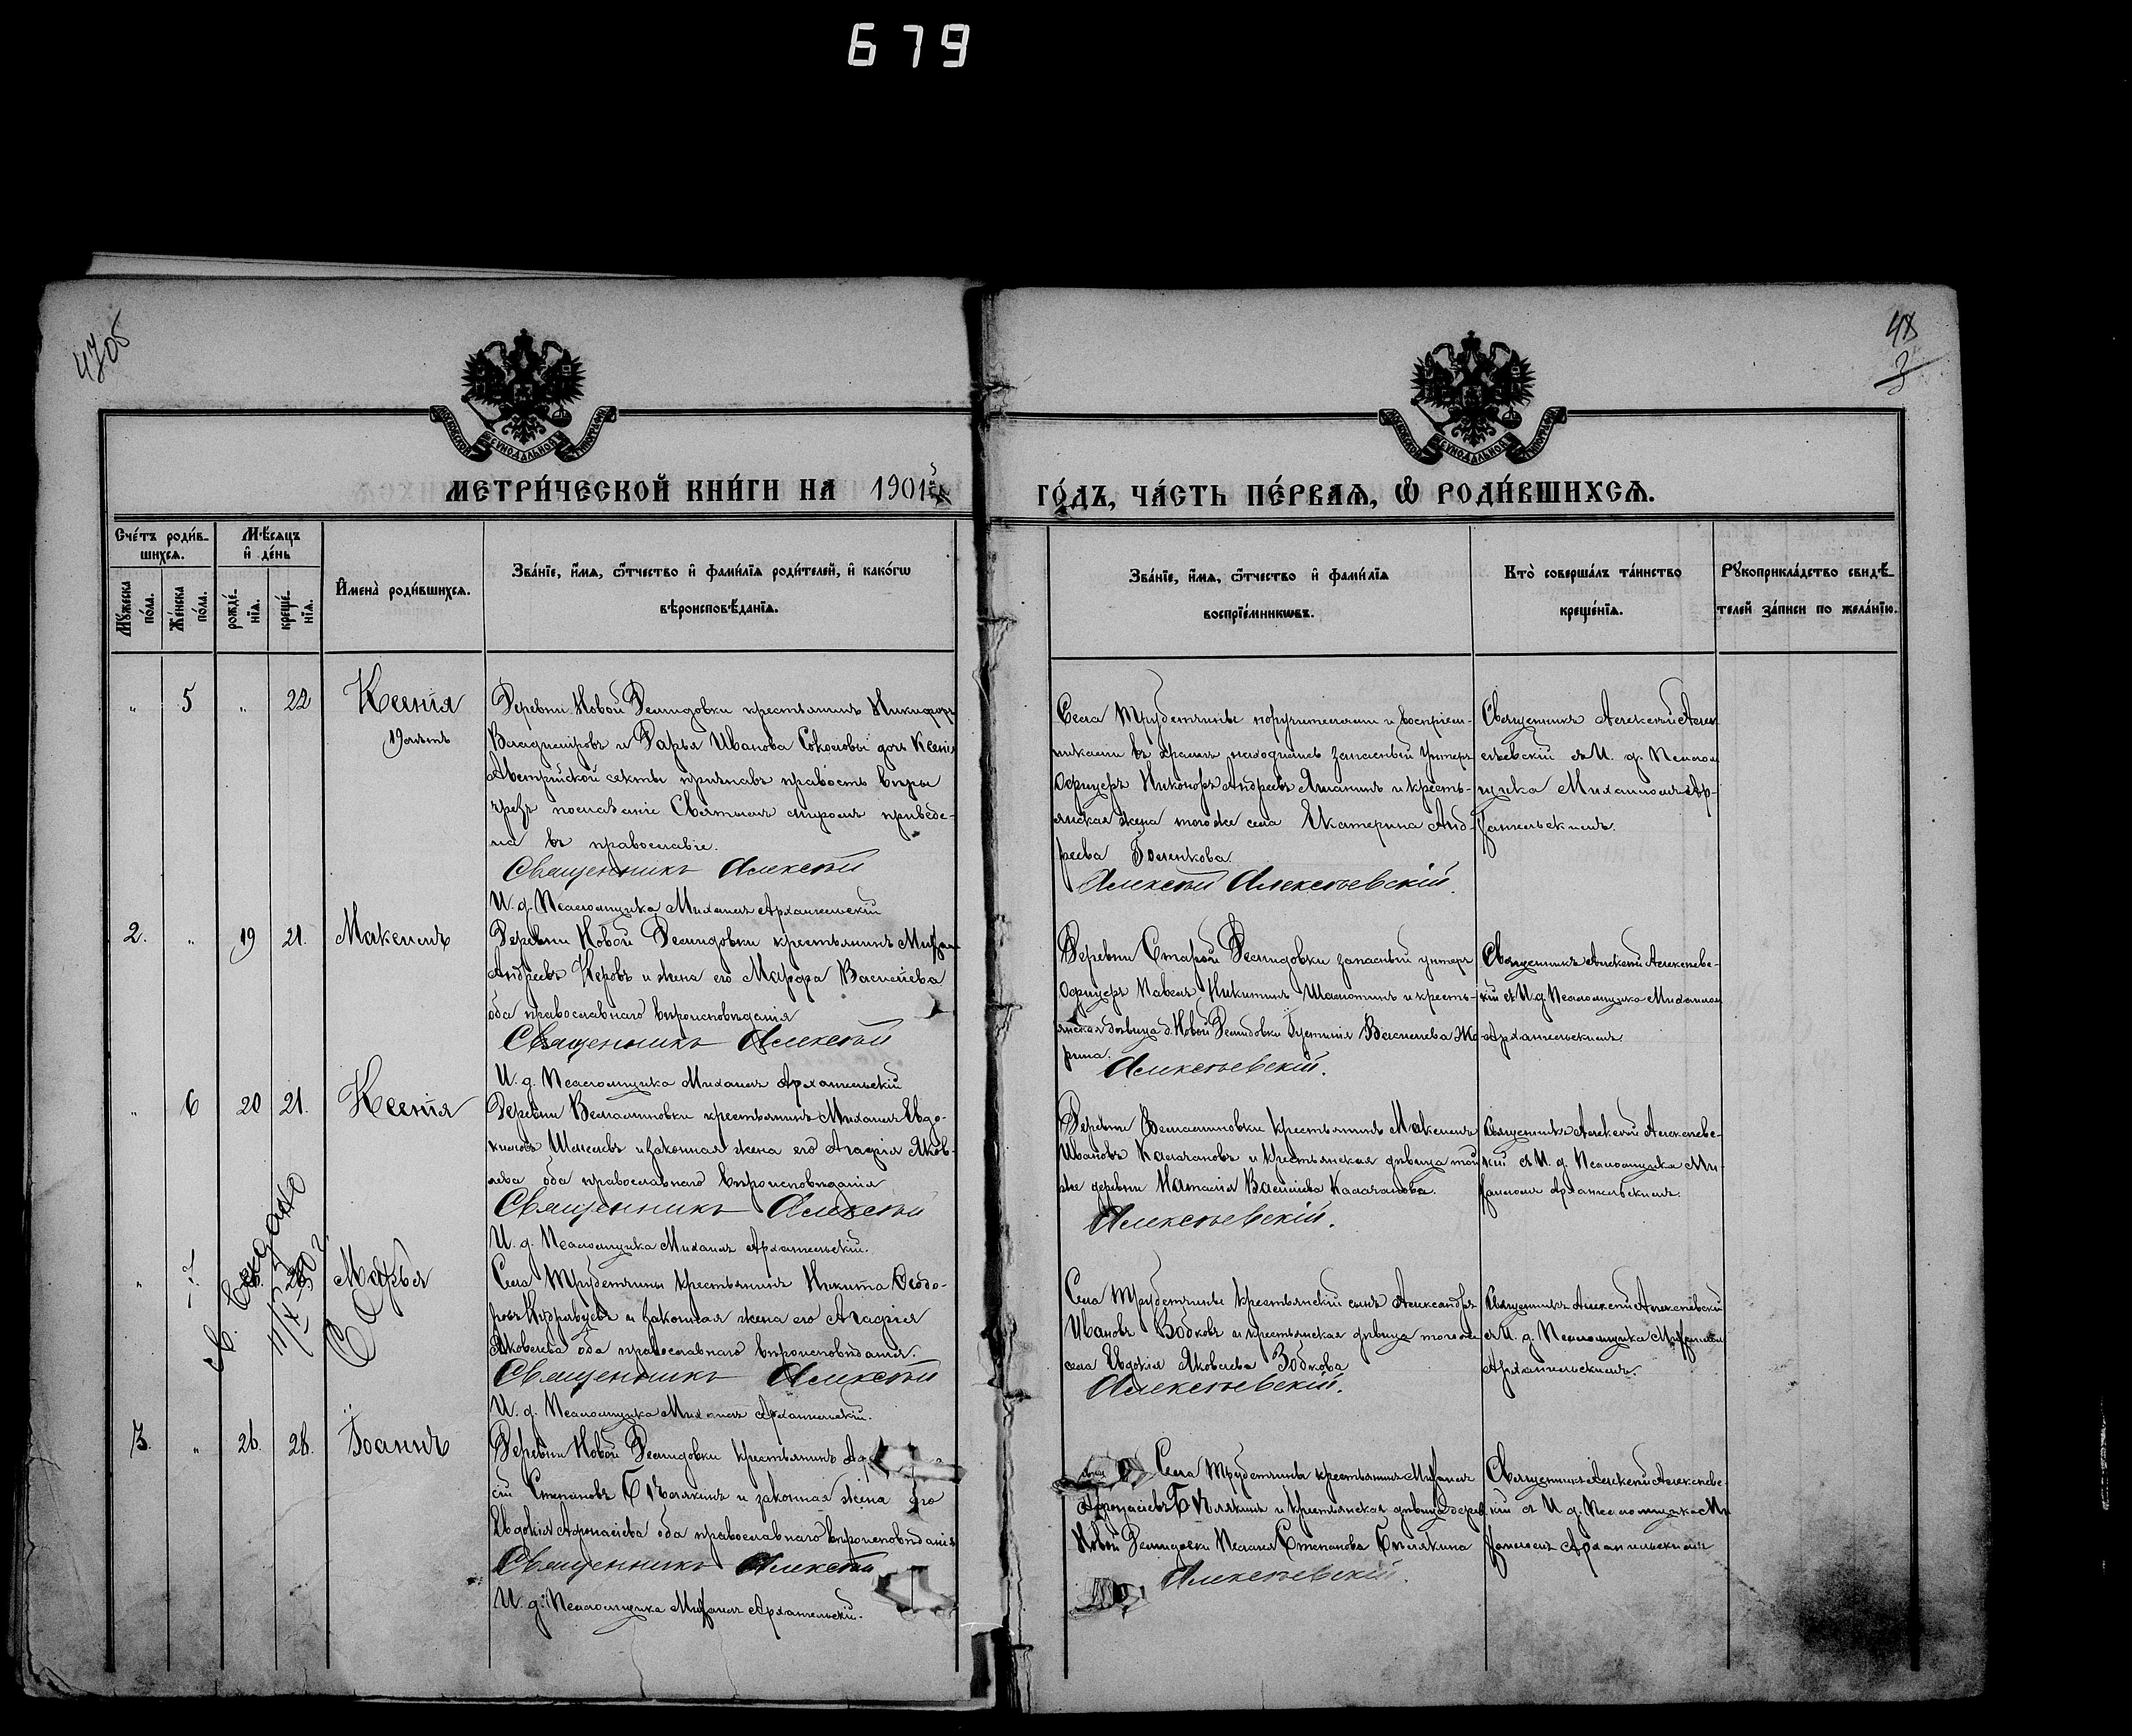 679
4705
48
3
МОСКОВСКОЙ СѴНОДАЛЬНОЙ ТИПОГРАФІИ
МОСКОВСКОЙ СѴНОДАЛЬНОЙ ТИПОГРАФІИ
МЕТРИ́ЧЕСКОЙ КНИ́ГИ НА 1901
ГО́ДЪ, ЧА́СТЬ ПЕ́РВАѦ, Ѽ РОДИ́ВШИХСѦ.
Сче́тъ роди́в-
шихсѧ.
Мѣ́сѧцъ
и҆ де́нь
Мꙋ́жеска
по́ла.
Же́нска
по́ла.
рожде́-
нїѧ.
креще́-
нїѧ.
И҆мена̀ роди́вшихсѧ.
Зва́нїе, и҆́мѧ, ѻ҆́тчество и҆ фами́лїѧ роди́телей, и҆ како́гѡ
вѣроисповѣ́данїѧ.
Зва́нїе, и҆́мѧ, ѻ҆́тчество и҆ фами́лїѧ
воспрїе́мникѡвъ.
Кто̀ соверша́лъ та́инство
креще́нїѧ.
Рꙋкоприкла́дство свидѣ́-
телей за́писи по жела́нїю.
„ 5 „ 22 Ксенія
19 лѣтъ
Деревни Новой Демидовки крестьянинъ Никифоръ
Владиміровъ и Дарья Иванова Соколовы дочь Ксенія
Австрійской секты признавъ правость вѣры
чрезъ помазаніе Святымъ миромъ приведе-
на въ православіе.
Священникъ Алексѣй
И. д. Псаломщика Михаилъ Архангельскій
Села Трубетчины поручителями и воспріем-
никами въ храмѣ находились запасный унтеръ
Офицеръ Никоноръ Андреевъ и кресть-
янская жена того же села Екатерина Анд-
реева Боленкова
Алексѣй Алексѣевскій.
Священникъ Алексѣй Алек
сѣевскій съ И. д. Псалом
щика Михаиломъ Ар-
хангельскимъ.
2. „ 19 21. Максимъ
Деревни Новой Демидовки крестьянинъ Михаи
Андреевъ Жеровъ и жена его Марфа Васильева
оба православнаго вѣроисповѣданія
Священникъ Алексѣй
И. д. Псаломщика Михаилъ Архангельскій
Деревни Старой Демидовки запасный унтеръ
Офицеръ Павелъ Никитинъ и кресть-
янская дѣвица д. Новой Демидовки Васильева Же-
рина.
Алексѣевскій.
Священникъ Алексѣй Алексѣевс-
кій съ И. д. Псаломщика Михаиломъ
Архангельскимъ.
„ 6 20 21. Ксенія
Деревни Вельяминовки крестьянинъ Михаилъ Евдо-
кимовъ и законная жена его Агафія Яков-
лева оба православнаго вѣроисповѣданія
Священникъ Алексѣй
И. д. Псаломщика Михаилъ Архангельскій.
Деревни Вельяминовки крестьянинъ Максимъ
Ивановъ Калачановъ и крестьянская дѣвица той
же деревни Наталія Васильева Калачанова.
Алексѣевскій.
Священникъ Алексѣй Алексѣевс-
кій съ И. д. Псаломщика Ми-
хаиломъ Архангельскимъ.
„ 7. Марья
Села Трубетчины крестьянинъ Никита Ѳеодо-
ровъ Кудрявцевъ и законная жена его Агафія
Яковлева оба православнаго вѣроисповѣданія.
Священникъ Алексѣй
И. д. Псаломщика Михаилъ Архангельскій.
Села Трубетчины крестьянскій сынъ Александръ
Ивановъ Зобковъ и крестьянская дѣвица того же
села Евдокія Яковлева Зобкова
Алексѣевскій.
Священникъ Алексѣй Алексѣевскій
съ И. д. Псаломщика Михаиломъ
Архангельскимъ.
3. „ 26. 28. Іоаннъ
Деревни Новой Демидовки крестьянинъ
Степановъ Бѣлякинъ и законная жена его
Евдокія Афонасіева оба православнаго вѣроисповѣданія
Священникъ Алексѣй
И. д. Псаломщика Михаилъ Архангельскій.
Села Трубетчины крестьянинъ Михаилъ
Афонасіевъ Бѣлякинъ и крестьянская дѣвица дерев
Новой Демидовки Степанова Бѣлякина
Алексѣевскій.
Священникъ Алексѣй Алексѣевс-
кій съ И. д. Псаломщика Ми
хаиломъ Архангельскимъ